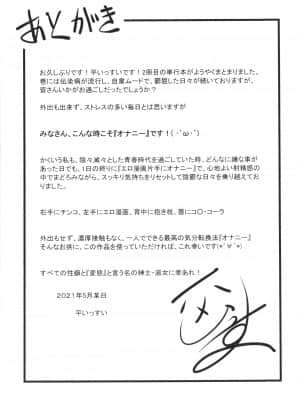 あとがき
お久しぶりです！平いっすいです！2冊目の単行本がようやくまとまりました。
巷には伝染病が流行し、自粛ムードで、鬱屈した日々が続いておりますが、
皆さんいかがお過ごしだったでしょうか？
外出も出来ず、ストレスの多い毎日とは思いますが
みなさん、こんな時こそ『オナニー』です！( ･`ω･´)
かくいう私も、陰々滅々とした青春時代を過ごしていた時、どんなに嫌な事が
あった日でも、1日の終りに『エロ漫画片手にオナニー』で、心地よい射精感の
中でまどろみながら、スッキリ気持ちをリセットして陰鬱な日々を乗り越えており
ました。
右手にチンコ、左手にエロ漫画、背中に抱き枕、唇にコ〇・コーラ
外出もせず、濃厚接触もなく、一人でできる最高の気分転換法『オナニー』
そんなお供に、この作品を使っていただければ、これ幸いです(*ﾟ∀ﾟ*)
すべての性癖と『変態』と言う名の紳士・淑女に幸あれ！
２０２１年５月某日
平いっすい